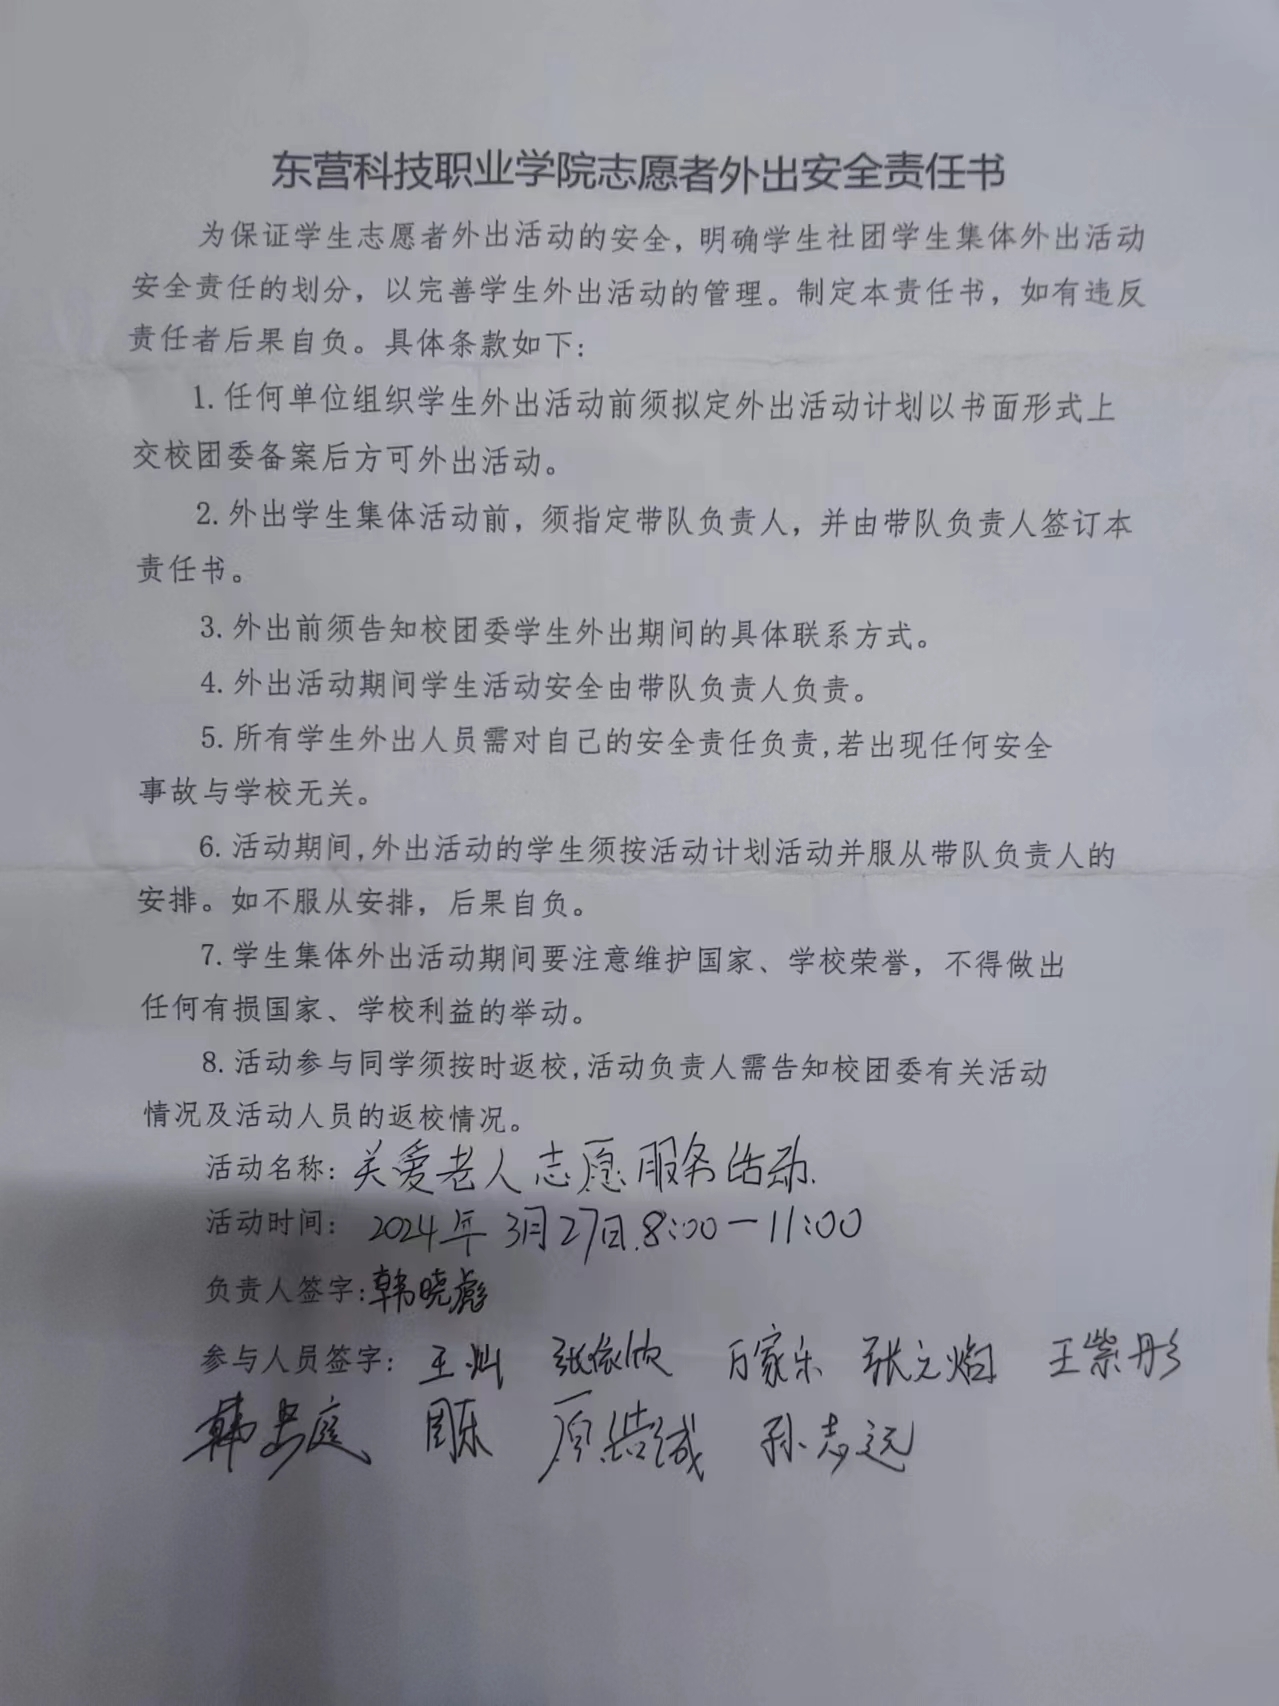 东营科技职业学院志愿者外出安全责任书
为保证学生志愿者外出活动的安全，明确学生社团学生集体外出活动
安全责任的划分，以完善学生外出活动的管理。制定本责任书，如有违反
责任者后果自负。具体条款如下:
1.任何单位组织学生外出活动前须拟定外出活动计划以书面形式上
交校团委备案后方可外出活动。
2.外出学生集体活动前，须指定带队负责人，并由带队负责人签订本
责任书。
3.外出前须告知校团委学生外出期间的具体联系方式。
4.外出活动期间学生活动安全由带队负责人负责。
5.所有学生外出人员需对自己的安全责任负责,若出现任何安全
事故与学校无关。
6.活动期间,外出活动的学生须按活动计划活动并服从带队负责人的
安排。如不服从安排，后果自负。
7.学生集体外出活动期间要注意维护国家、学校荣誉，不得做出
任何有损国家、学校利益的举动。
8.活动参与同学须按时返校,活动负责人需告知校团委有关活动
情况及活动人员的返校情况。
活动名称: 关爱老人志愿服务活动.
活动时间: 2024年3月27日.8:00-11:00
负责人签字:韩晓彪
参与人员签字: 王灿 张依欣 万家乐 张文焰 王紫彤
周东 孙志远